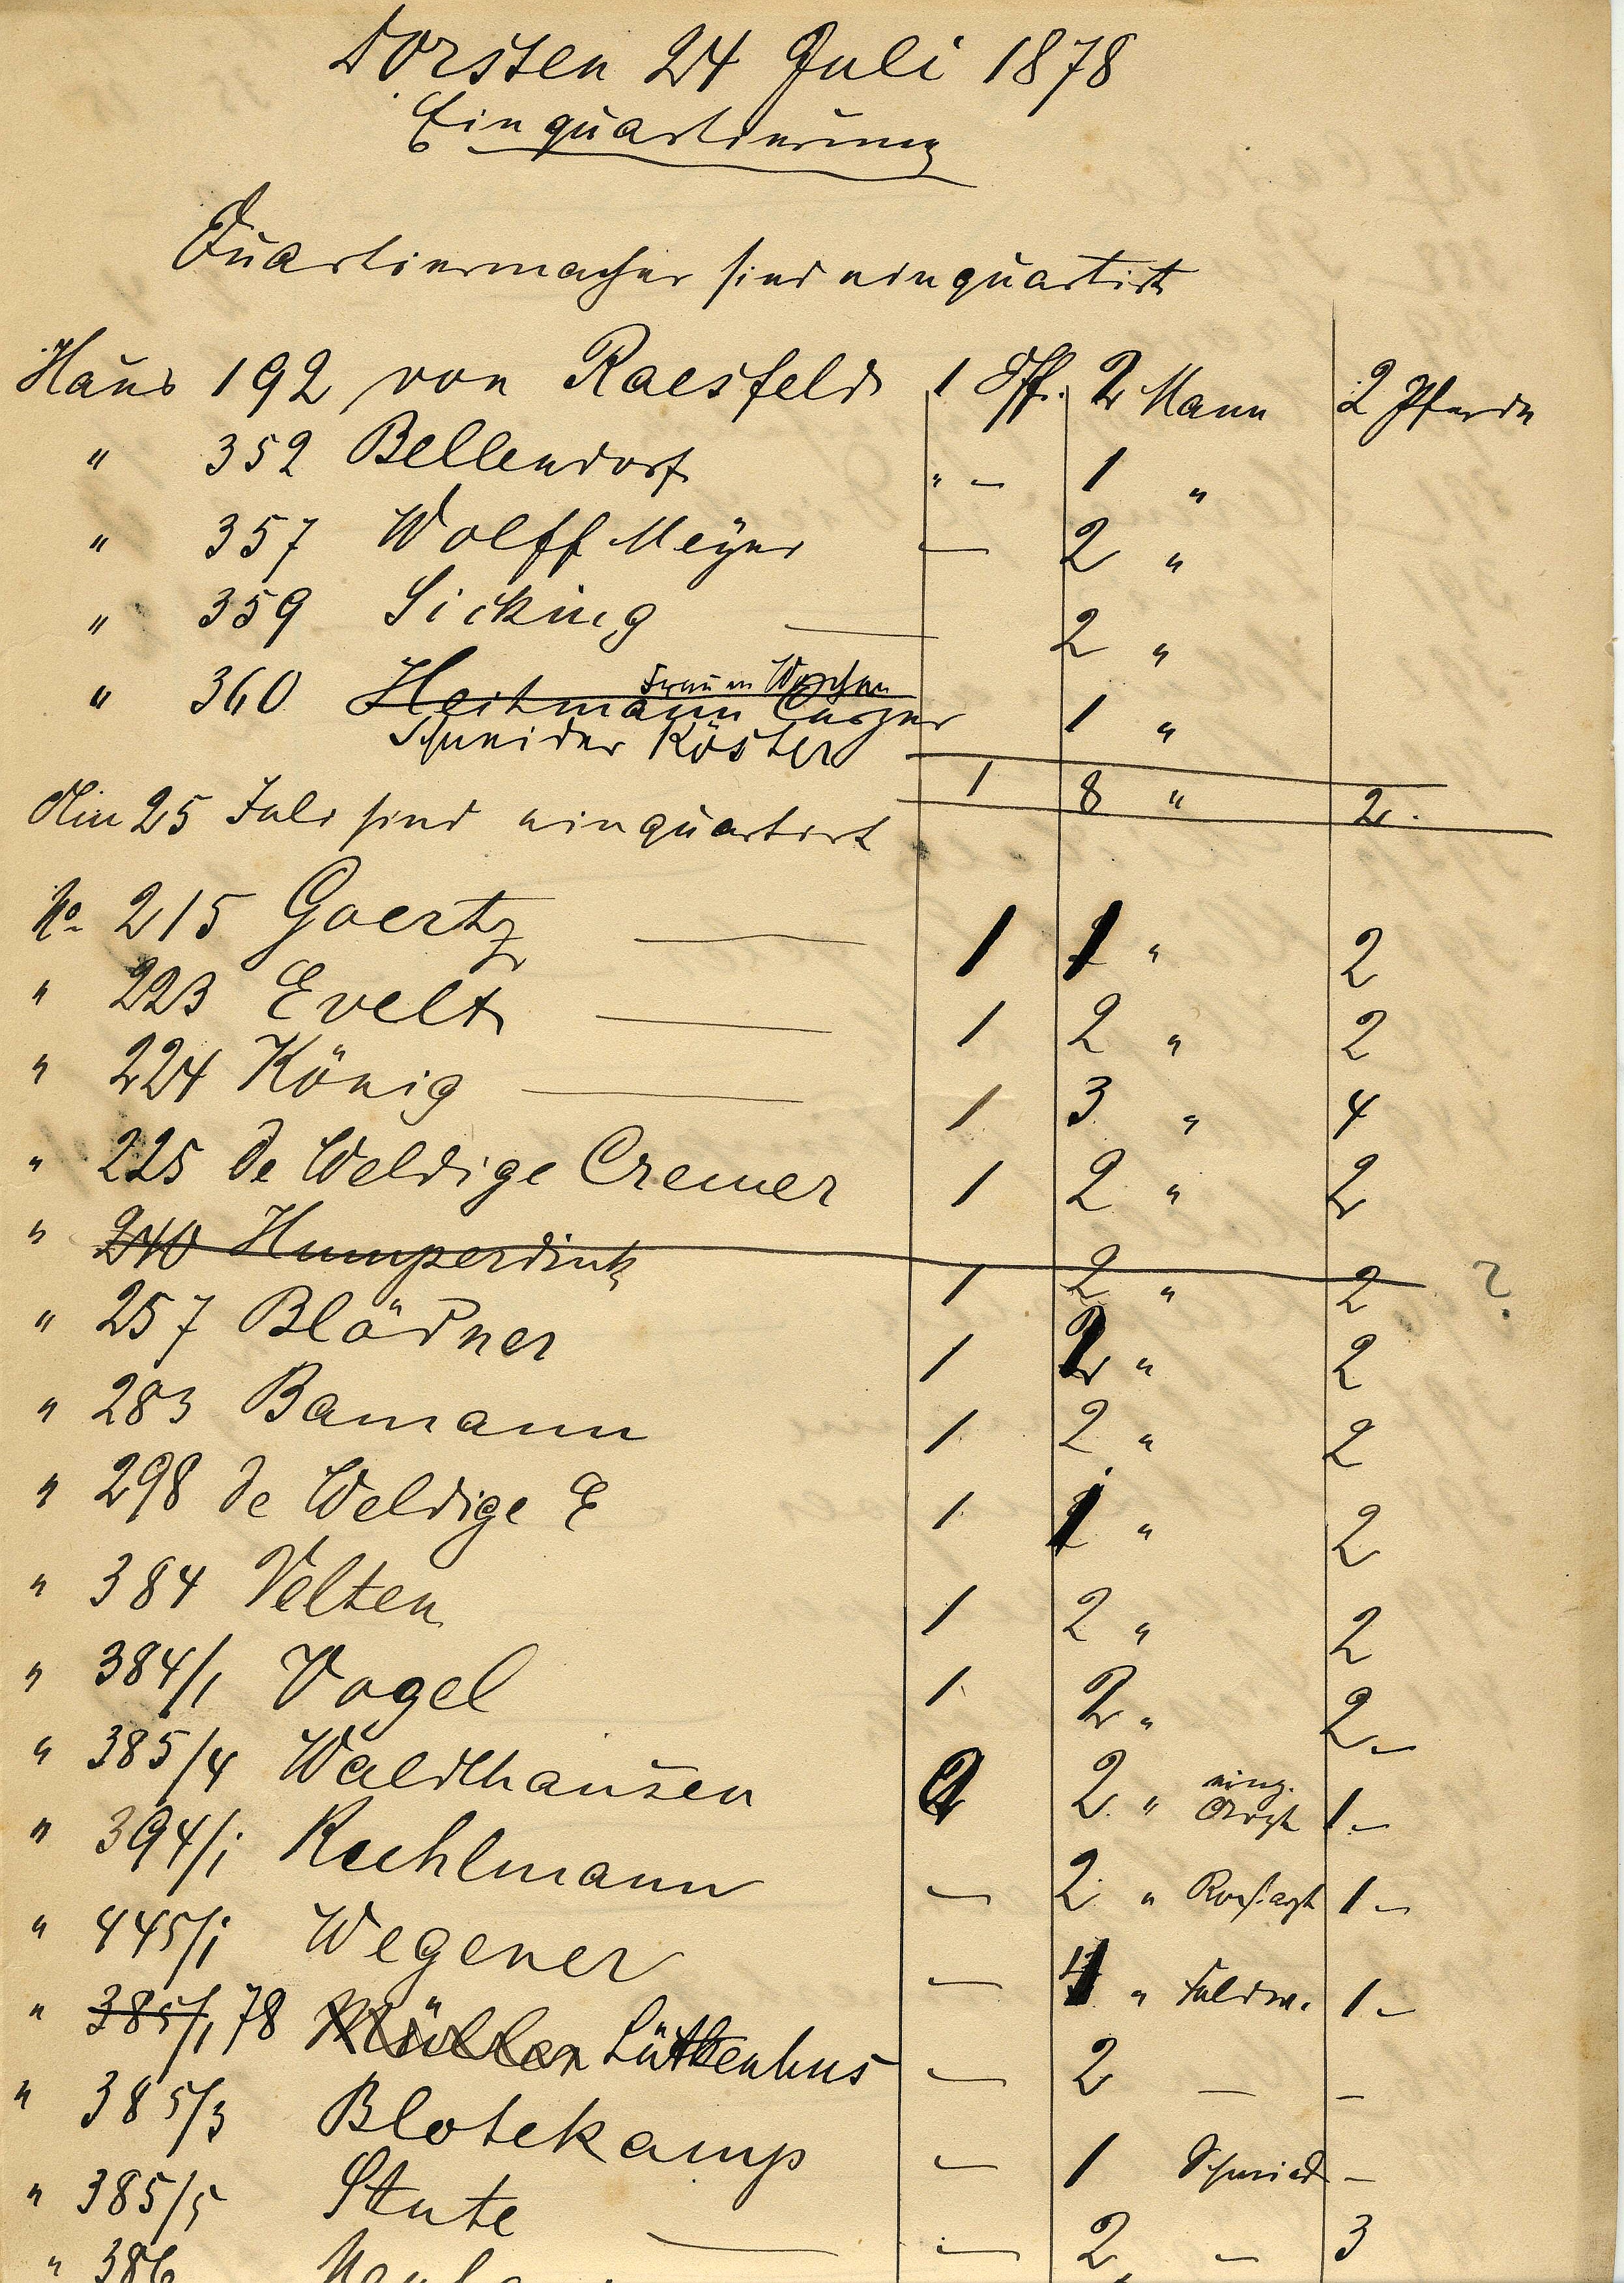 Dorsten 24 Juli 1878
Einquartierung
Quartiermacher sind einquartirt
Haus 192 von Raesfeld 1 Off. 2 Mann 2 Pferde
" 352 Bellendorf " — 1 "
" 357 Wolff Meÿer — 2 "
" 359 Sicking — 2 "
Frau in Wochen
" 360 Heitmann 1 "
Schneider Köster
1 8 " 2.
Den 25 Juli sind einquartirt
No 215 Goertz — 1 1 " 2
" 223 Evelt — 1 2 " 2
" 224 König — 1 3 " 4
" 225 de Weldige Cremer 1 2 " 2
" 240 Humperdink 1 2 " 2 ?
" 257 Blödner 1 1 " 2
" 283 Bamann 1 2 " 2
" 298 de Weldige E 1 1 " 2
" 384 Velten 1 2 " 2
" 384/1 Vogel 1 2 " 2 —
" 385/4 Waldthausen 2 " 1 —
" 394/1 Kuhlmann — 2 " Roßarzt 1 —
" 445/1 Wegener — 1 " Feldw. 1 —
" 385/1 78 Müller Lüttenhus — 2 — —
" 385/3 Blotekamp — 1 Schmied —
" 385/5 Stute — — 2 — 3
" 386